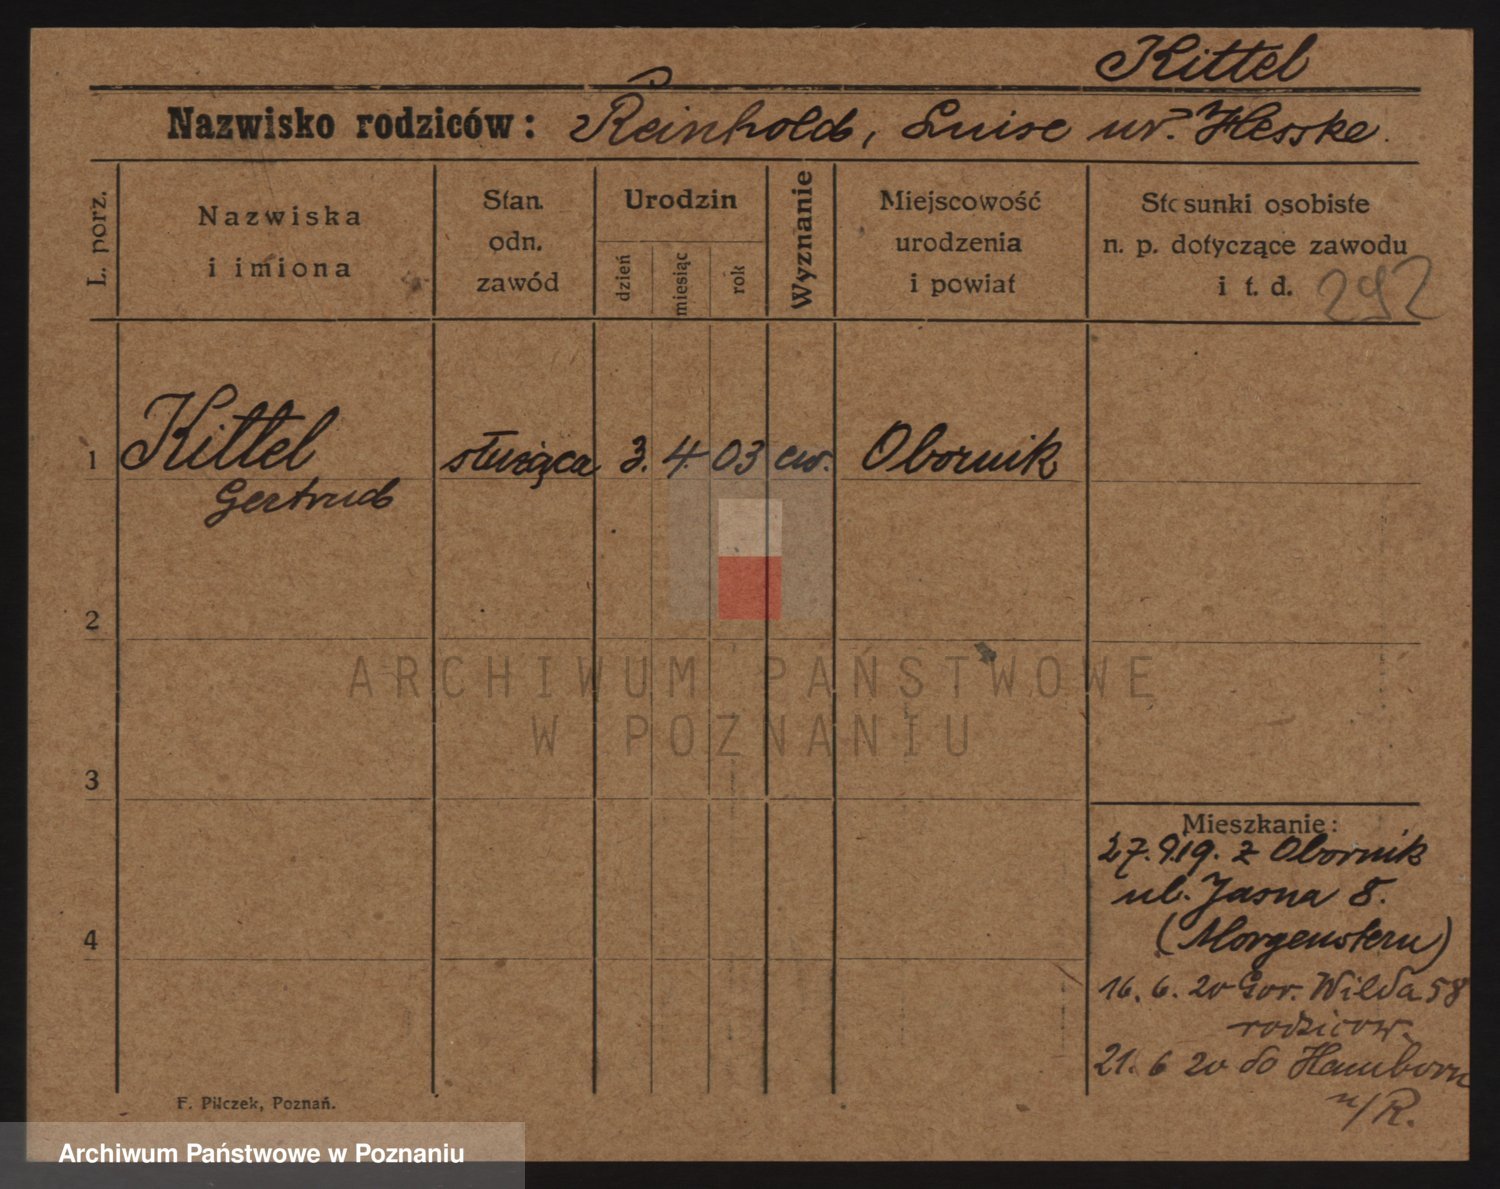 Kittel
Nazwisko rodziców: Reinhold, Luise ur. Hesske.
L. porz.
Nazwiska
i imiona
Stan.
odn.
zawód
Urodzin
dzień
miesiąc
rok
Wyznanie
Miejscowość
urodzenia
i powiat
Stosunki osobiste
n. p. dotyczące zawodu
i t. d.
292
1 Kittel służąca 3. 4. 03 ew. Obornik
Gertrud
2
ARCHIWUM PAŃSTWOWE
W POZNANIU
3
Mieszkanie:
27.9.19. z Obornik
ul. Jasna 8.
(Morgenstern)
4
16. 6. 20 Gór. Wilda 58
rodziców.
21. 6 20 do Hamborn
n/R.
F. Pilczek, Poznań.
Archiwum Państwowe w Poznaniu